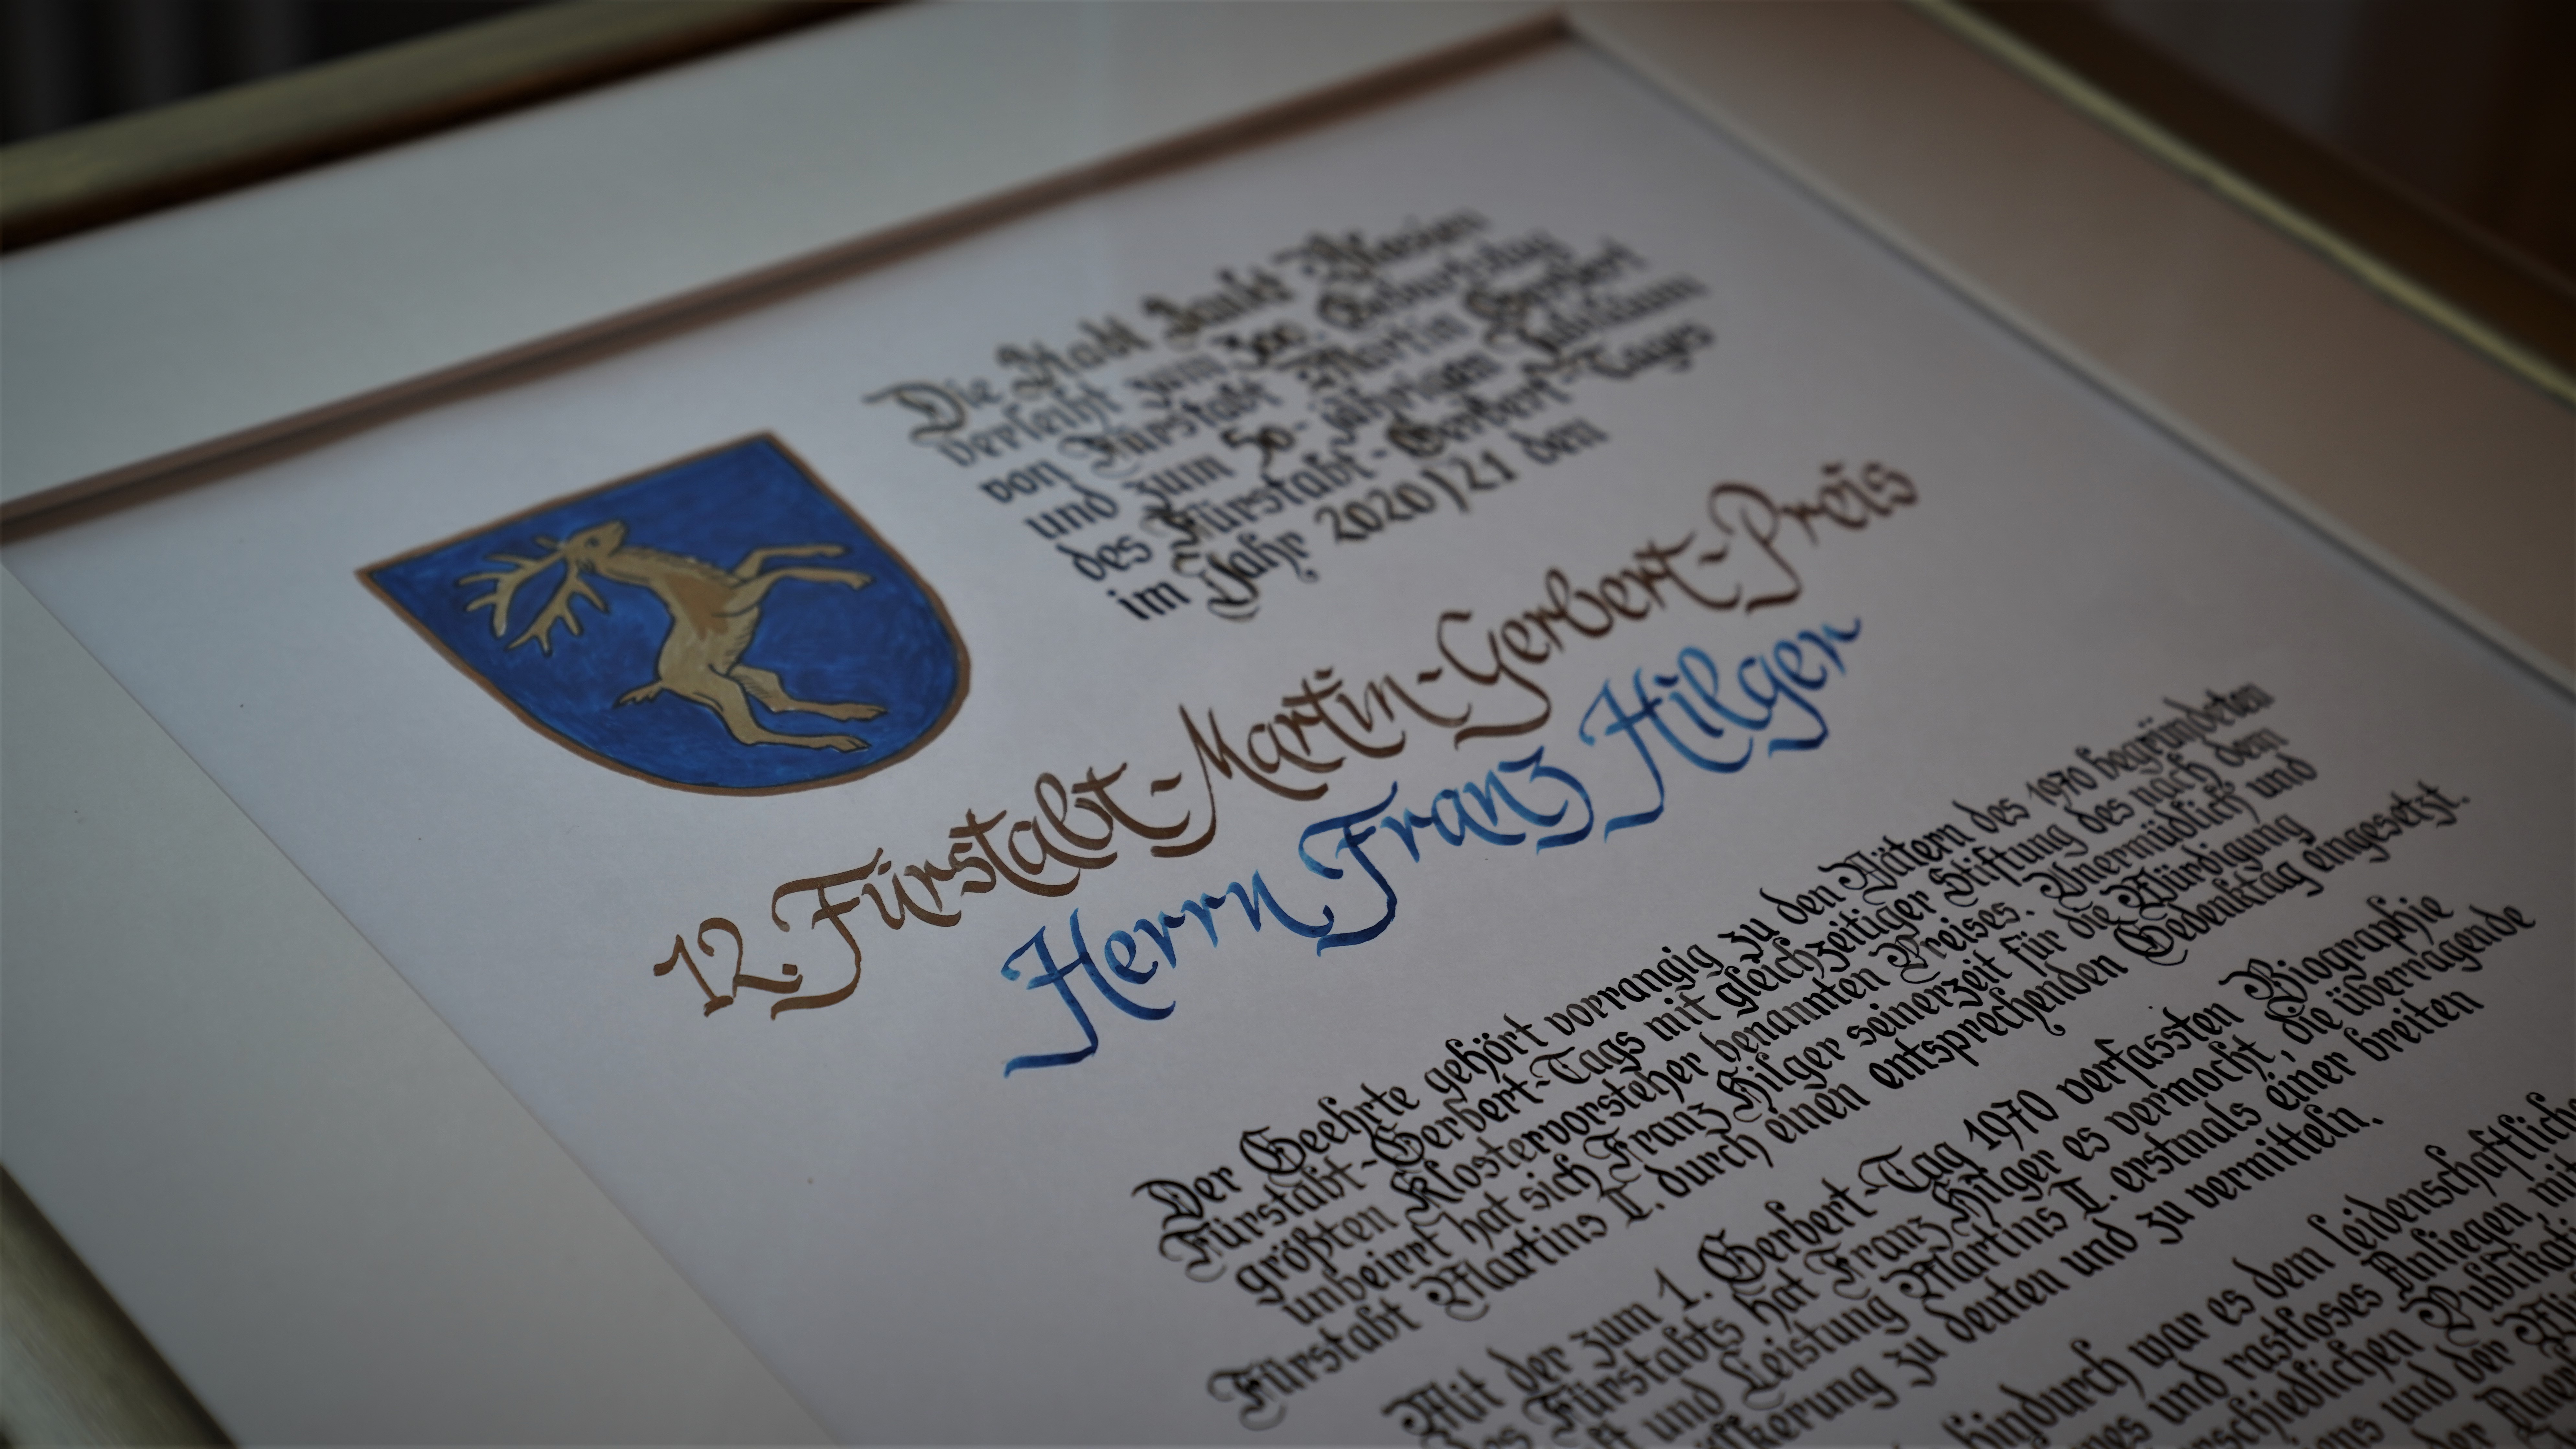 Die Stadt Sankt Blasien
verleiht zum 300. Geburtstag
von Fürstabt Martin Gerbert
und zum 50-jährigen Jubiläum
des Fürstabt-Gerbert-Tages
im Jahr 2020/21 den
12. Fürstabt-Martin-Gerbert-Preis
Herrn Franz Hilger
Der Geehrte gehört vorrangig zu den Vätern des 1970 begründeten
Fürstabt-Gerbert-Tags mit gleichzeitiger Stiftung des nach dem
größten Klostervorsteher benannten Preises. Unermüdlich und
unbeirrt hat sich Franz Hilger seinerzeit für die Würdigung
Fürstabt Martins II. durch einen entsprechenden Gedenktag eingesetzt.
Mit der zum 1. Gerbert-Tag 1970 verfassten Biographie
des Fürstabts hat Franz Hilger es vermocht, die überragende
und Leistung Martins II. erstmals einer breiten
zu deuten und zu vermitteln.
hindurch war es dem leidenschaftlichen
und rastloses Anliegen, mit
und der